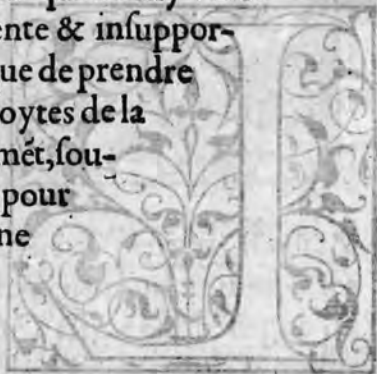 ente & inſuppor-
ue de prendre
oytes de la
mét,ſou-
pour
ne